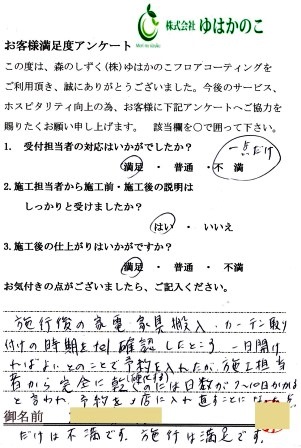 株式会社 ゆはかのこ
お客様満足度アンケート
この度は、森のしずく(株)ゆはかのこフロアコーティングを
ご利用頂き、誠にありがとうございました。今後のサービス、
ホスピタリティ向上の為、お客様に下記アンケートへご協力を
賜りたくお願い申し上げます。 該当欄を○で囲って下さい。
1. 受付担当者の対応はいかがでしたか？
一点だけ
満足 ・ 普通 ・ 不満
2.施工担当者から施工前・施工後の説明は
しっかりと受けましたか？
はい ・ いいえ
3.施工後の仕上がりはいかがですか？
満足 ・ 普通 ・ 不満
お気付きの点がございましたら、ご記入ください。
施行後の家電家具搬入、カーテン取り
付けの時期をtel確認したところ一日開け
ればよいとのことで予約を入れたが、施工担当
者から完全に乾く(硬化する)のには日数が かかる
と言われ、予約を 入れ直すことになった点
だけは不満です。施行は満足です。
御名前